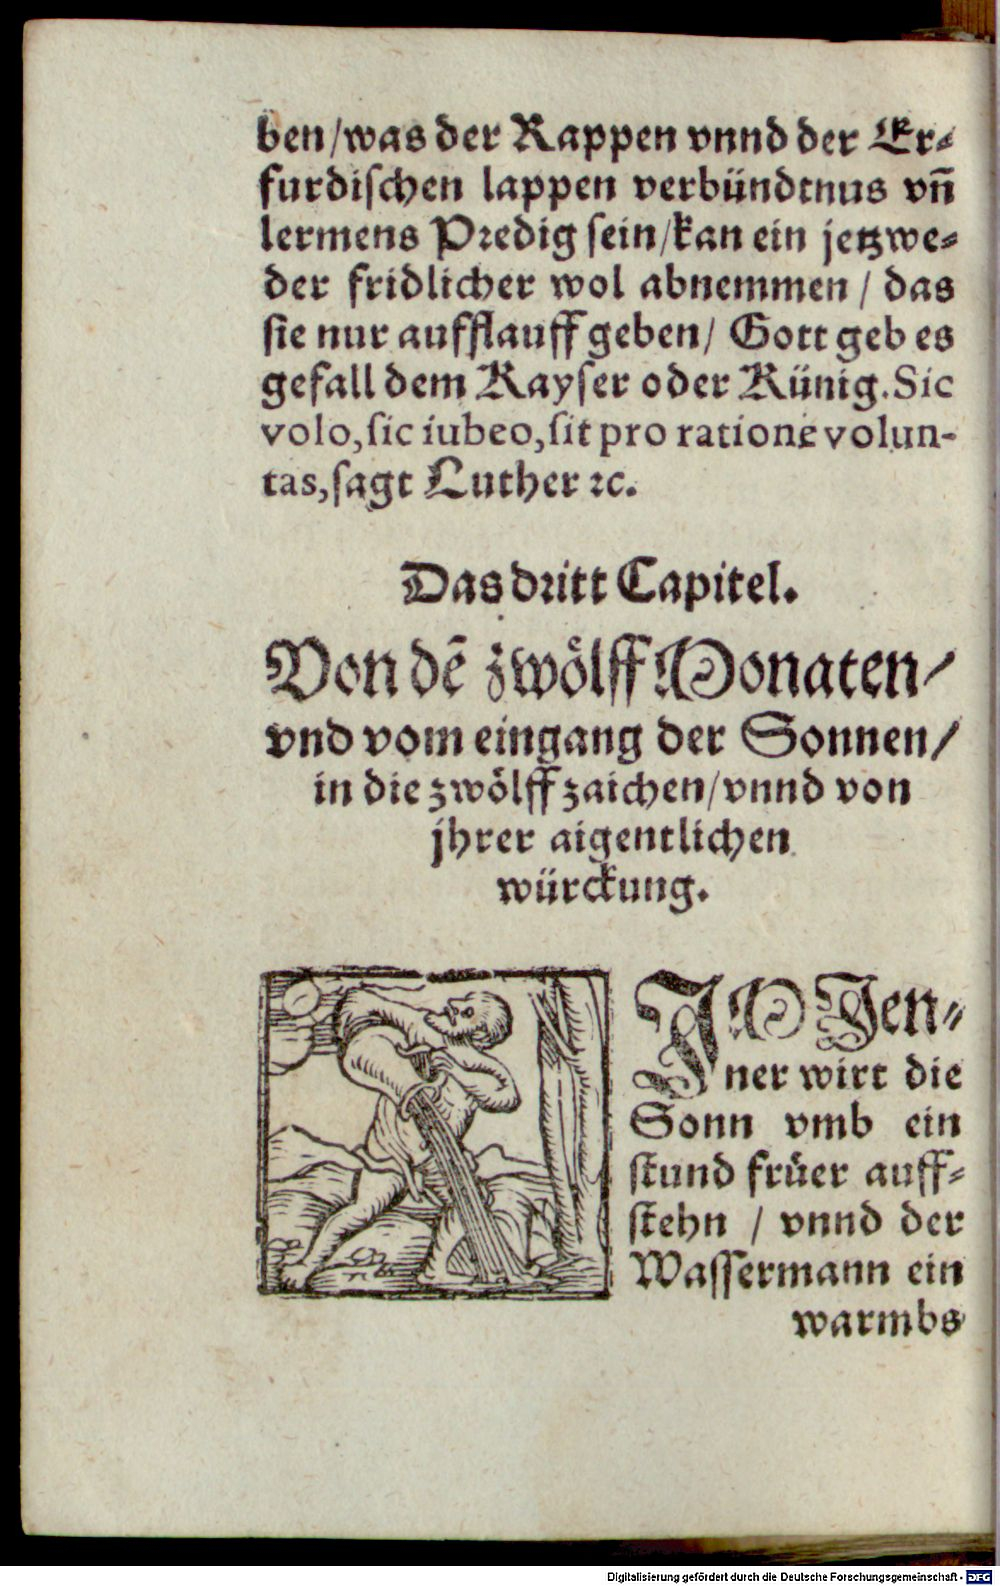 ben/was der Rappen vnnd der Er⸗
furdischen lappen verbündtnus vn̄
lermens Predig sein/kan ein jetzwe⸗
der fridlicher wol abnemmen / das
sie nur aufflauff geben/ Gott geb es
gefall dem Kayser oder Künig. Sic
volo, sic iubeo, sit pro ratione volun-
tas, sagt Luther ⁊c.
Das dritt Capitel.
Von dē zwölff Monaten/
vnd vom eingang der Sonnen/
in die zwölff zaichen/vnnd von
jhrer aigentlichen
würckung.
IM Jen⸗
ner wirt die
Sonn vmb ein
stund früer auff⸗
stehn / vnnd der
Wassermann ein
warmbs
Digitalisierung gefördert durch die Deutsche Forschungsgemeinschaft - DFG